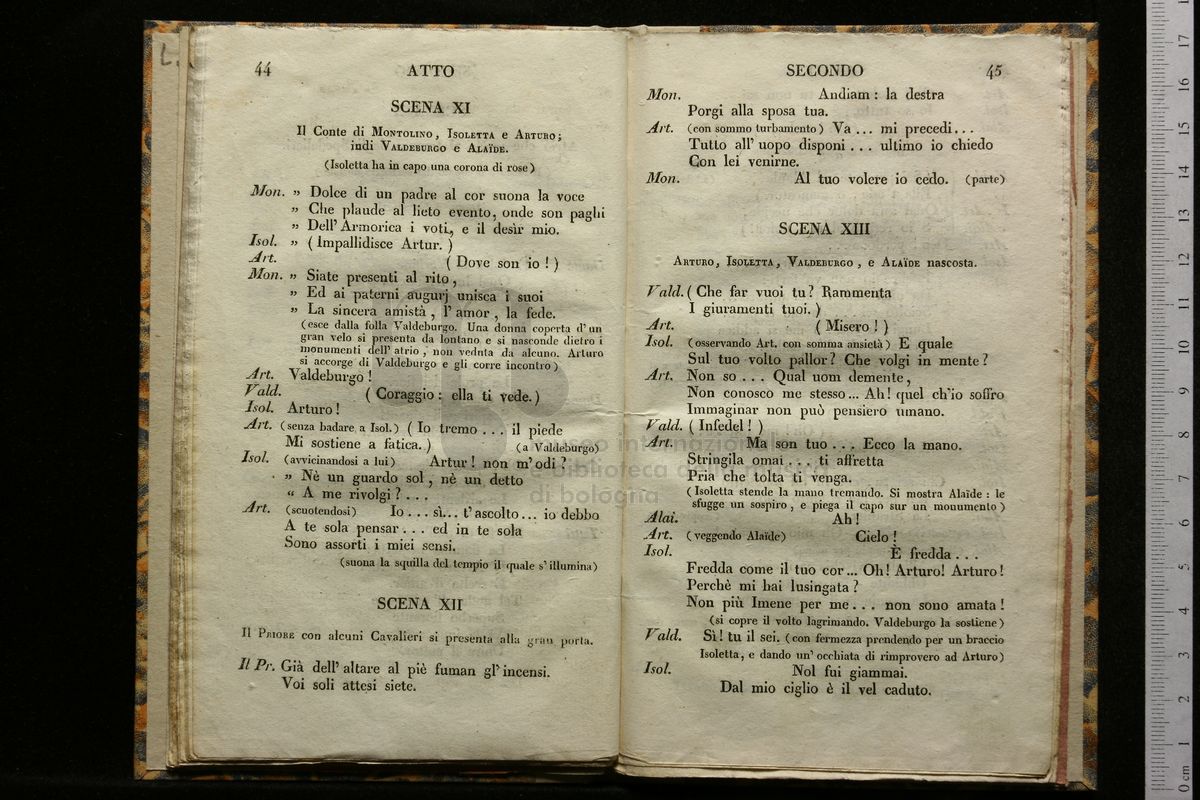 L.
44 ATTO
SCENA XI
Il Conte di Montolino, Isoletta e Arturo;
indi Valdeburgo e Alaïde.
(Isoletta ha in capo una corona di rose)
Mon. „ Dolce di un padre al cor suona la voce
„ Che plaude al lieto evento, onde son paghi
„ Dell' Armorica i voti, e il desìr mio.
Isol. „ ( Impallidisce Artur. )
Art. ( Dove son io ! )
Mon. „ Siate presenti al rito,
„ Ed ai paterni augurj unisca i suoi
„ La sincera amistà, l' amor, la fede.
(esce dalla folla Valdeburgo. Una donna coperta d' un
gran velo si presenta da lontano e si nasconde dietro i
monumenti dell' atrio, non veduta da alcuno. Arturo
si accorge di Valdeburgo e gli corre incontro)
Art. Valdeburgo !
Vald. ( Coraggio : ella ti vede. )
Isol. Arturo !
Art. (senza badare a Isol.) ( Io tremo . . . il piede
Mi sostiene a fatica. ) (a Valdeburgo)
Isol. (avvicinandosi a lui) Artur ! non m' odi ?
„ Nè un guardo sol, nè un detto
“ A me rivolgi ? . . .
Art. (scuotendosi) Io . . . sì... t' ascolto... io debbo
A te sola pensar . . . ed in te sola
Sono assorti i miei sensi.
(suona la squilla del tempio il quale s' illumina)
SCENA XII
Il Priore con alcuni Cavalieri si presenta alla gran porta.
Il Pr. Già dell' altare al piè fuman gl' incensi.
Voi soli attesi siete.
SECONDO 45
Mon. Andiam : la destra
Porgi alla sposa tua.
Art. (con sommo turbamento) Va ... mi precedi...
Tutto all' uopo disponi . . . ultimo io chiedo
Con lei venirne.
Mon. Al tuo volere io cedo. (parte)
SCENA XIII
Arturo, Isoletta, Valdeburgo, e Alaïde nascosta.
Vald. ( Che far vuoi tu ? Rammenta
I giuramenti tuoi. )
Art. ( Misero ! )
Isol. (osservando Art. con somma ansietà) E quale
Sul tuo volto pallor ? Che volgi in mente ?
Art. Non so . . . Qual uom demente,
Non conosco me stesso... Ah ! quel ch'io soffro
Immaginar non può pensiero umano.
Vald. ( Infedel ! )
Art. Ma son tuo . . . Ecco la mano.
Stringila omai . . . ti affretta
Pria che tolta ti venga.
( Isoletta stende la mano tremando. Si mostra Alaïde : le
sfugge un sospiro, e piega il capo sur un monumento )
Alai. Ah !
Art. (veggendo Alaïde) Cielo !
Isol. È fredda . . .
Fredda come il tuo cor... Oh ! Arturo! Arturo!
Perchè mi hai lusingata ?
Non più Imene per me . . . non sono amata !
(si copre il volto lagrimando. Valdeburgo la sostiene)
Vald. Sì! tu il sei. (con fermezza prendendo per un braccio
Isoletta, e dando un' occhiata di rimprovero ad Arturo)
Isol. Nol fui giammai.
Dal mio ciglio è il vel caduto.
museo internazionale
e biblioteca della musica
di bologna
0 cm 1 2 3 4 5 6 7 8 9 10 11 12 13 14 15 16 17